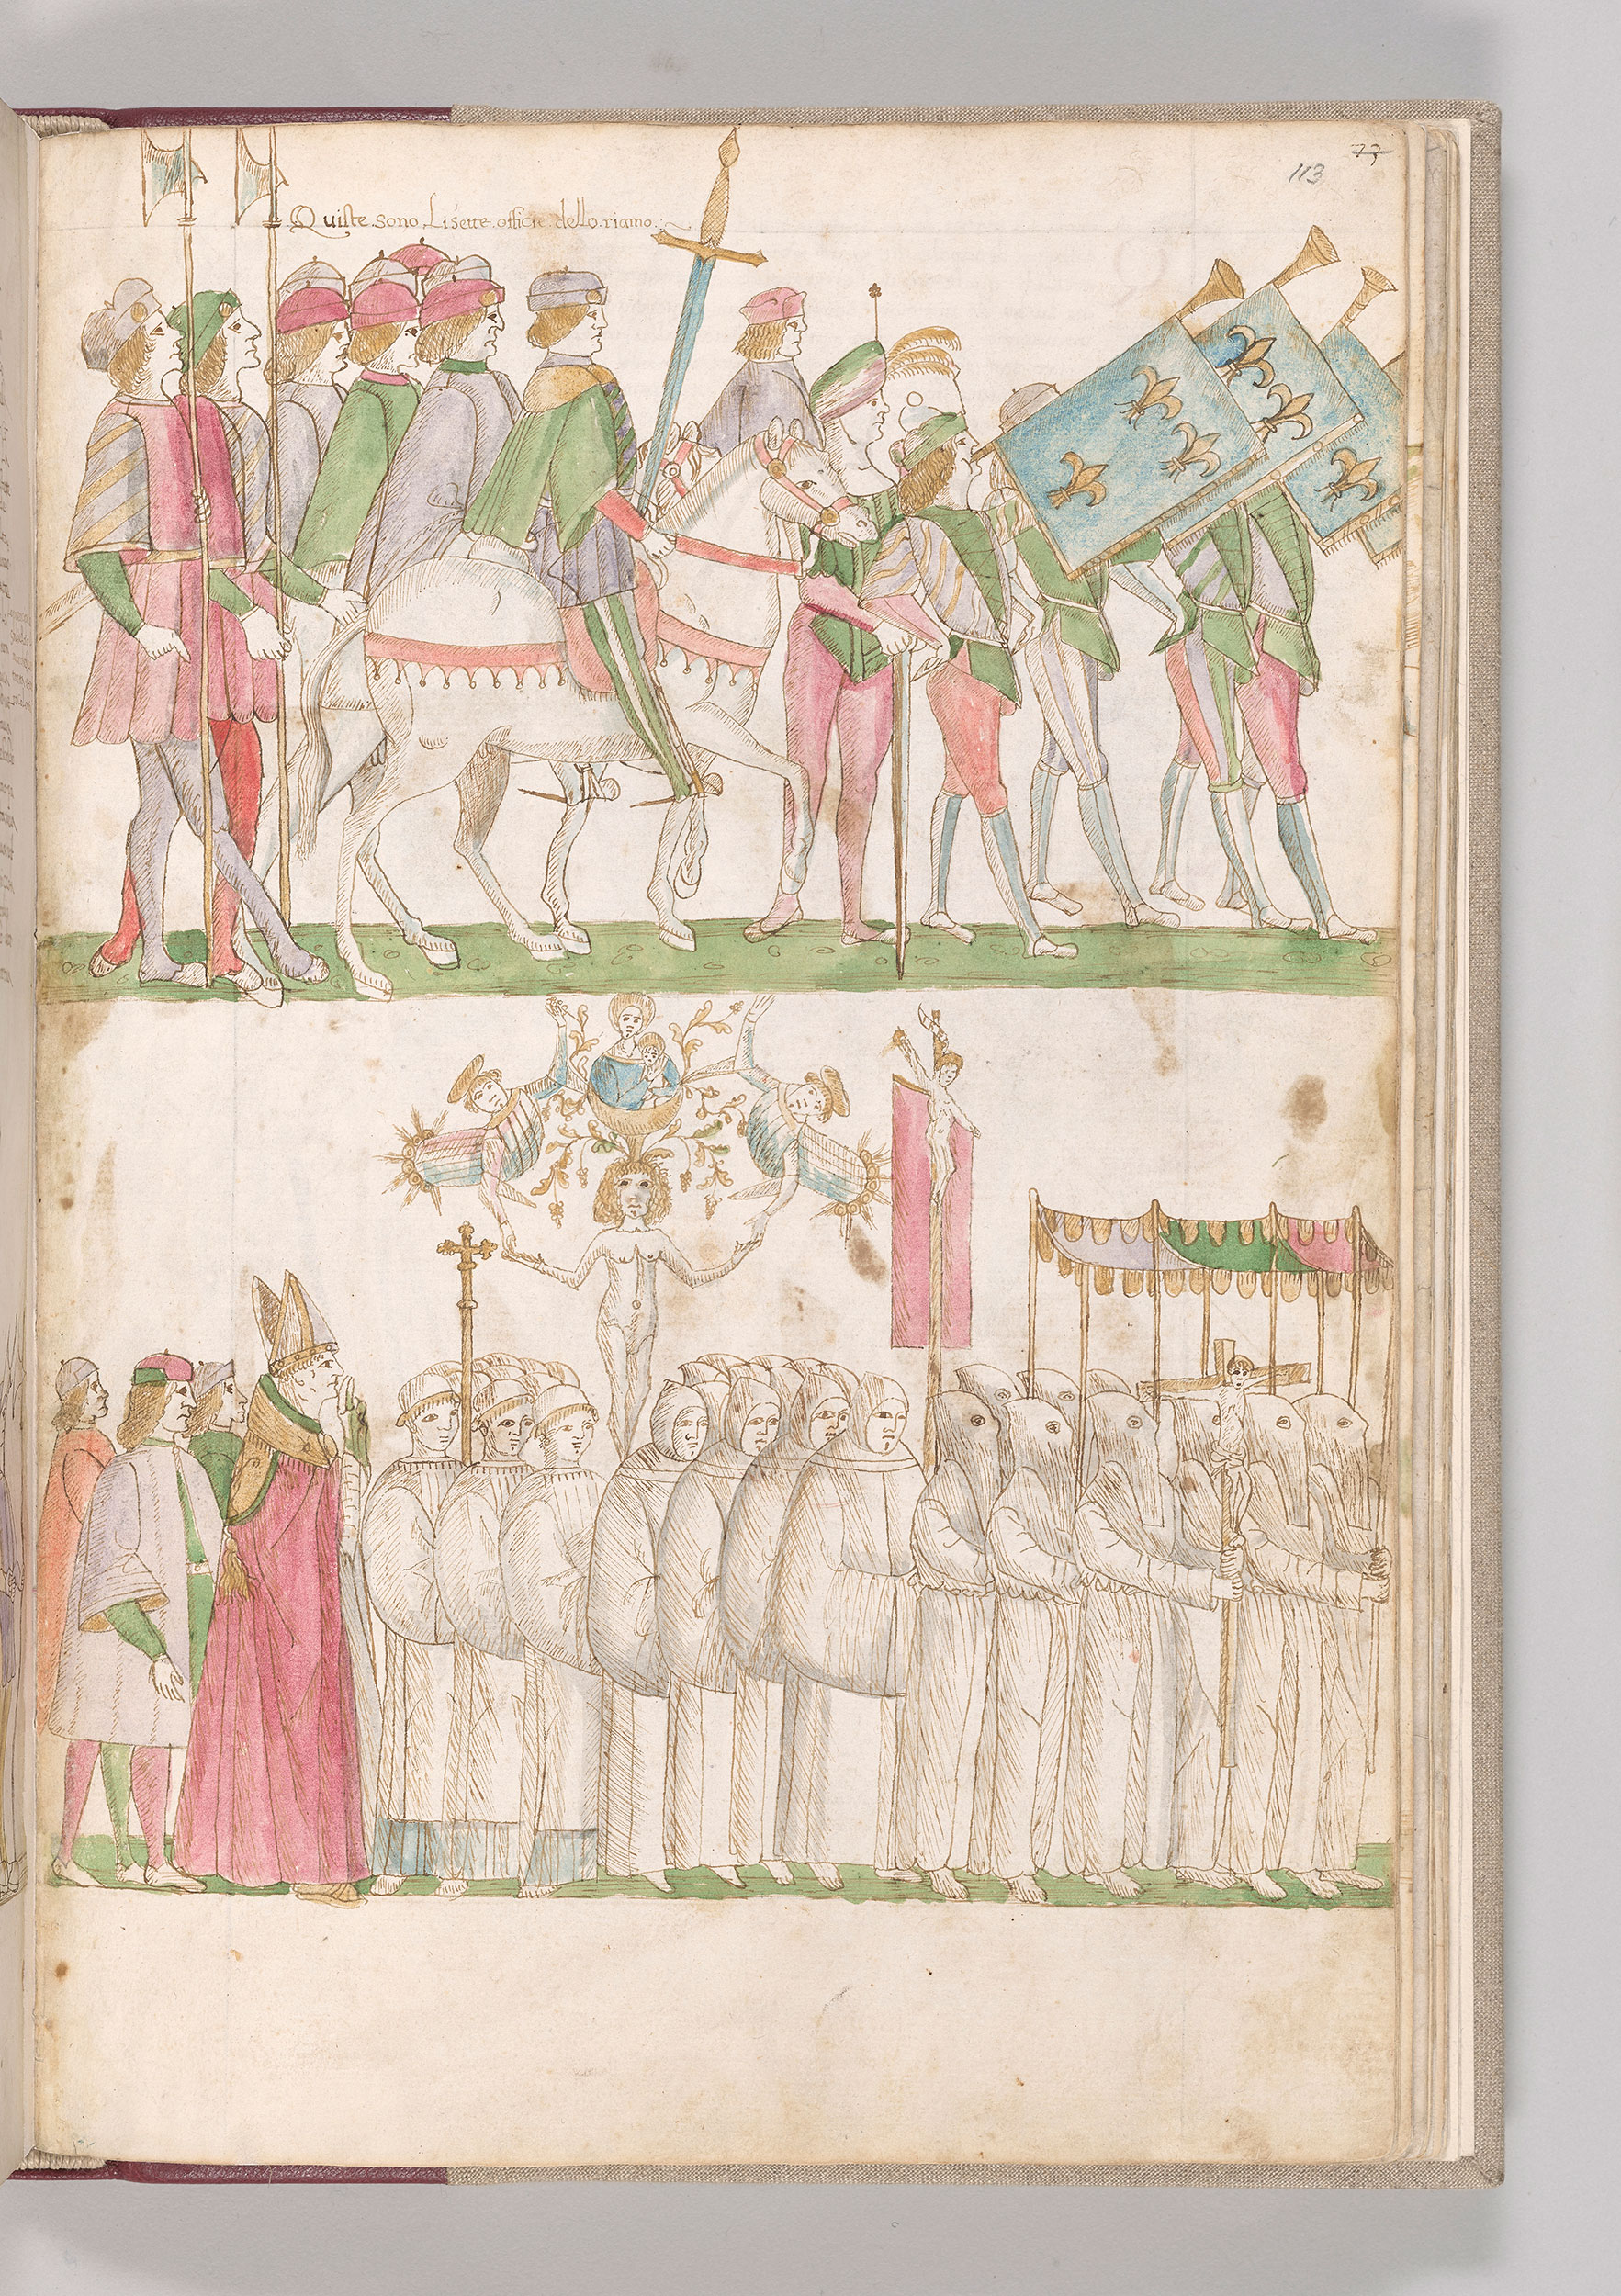 73
113
Quiste sono Li sette officie dello riamo :~